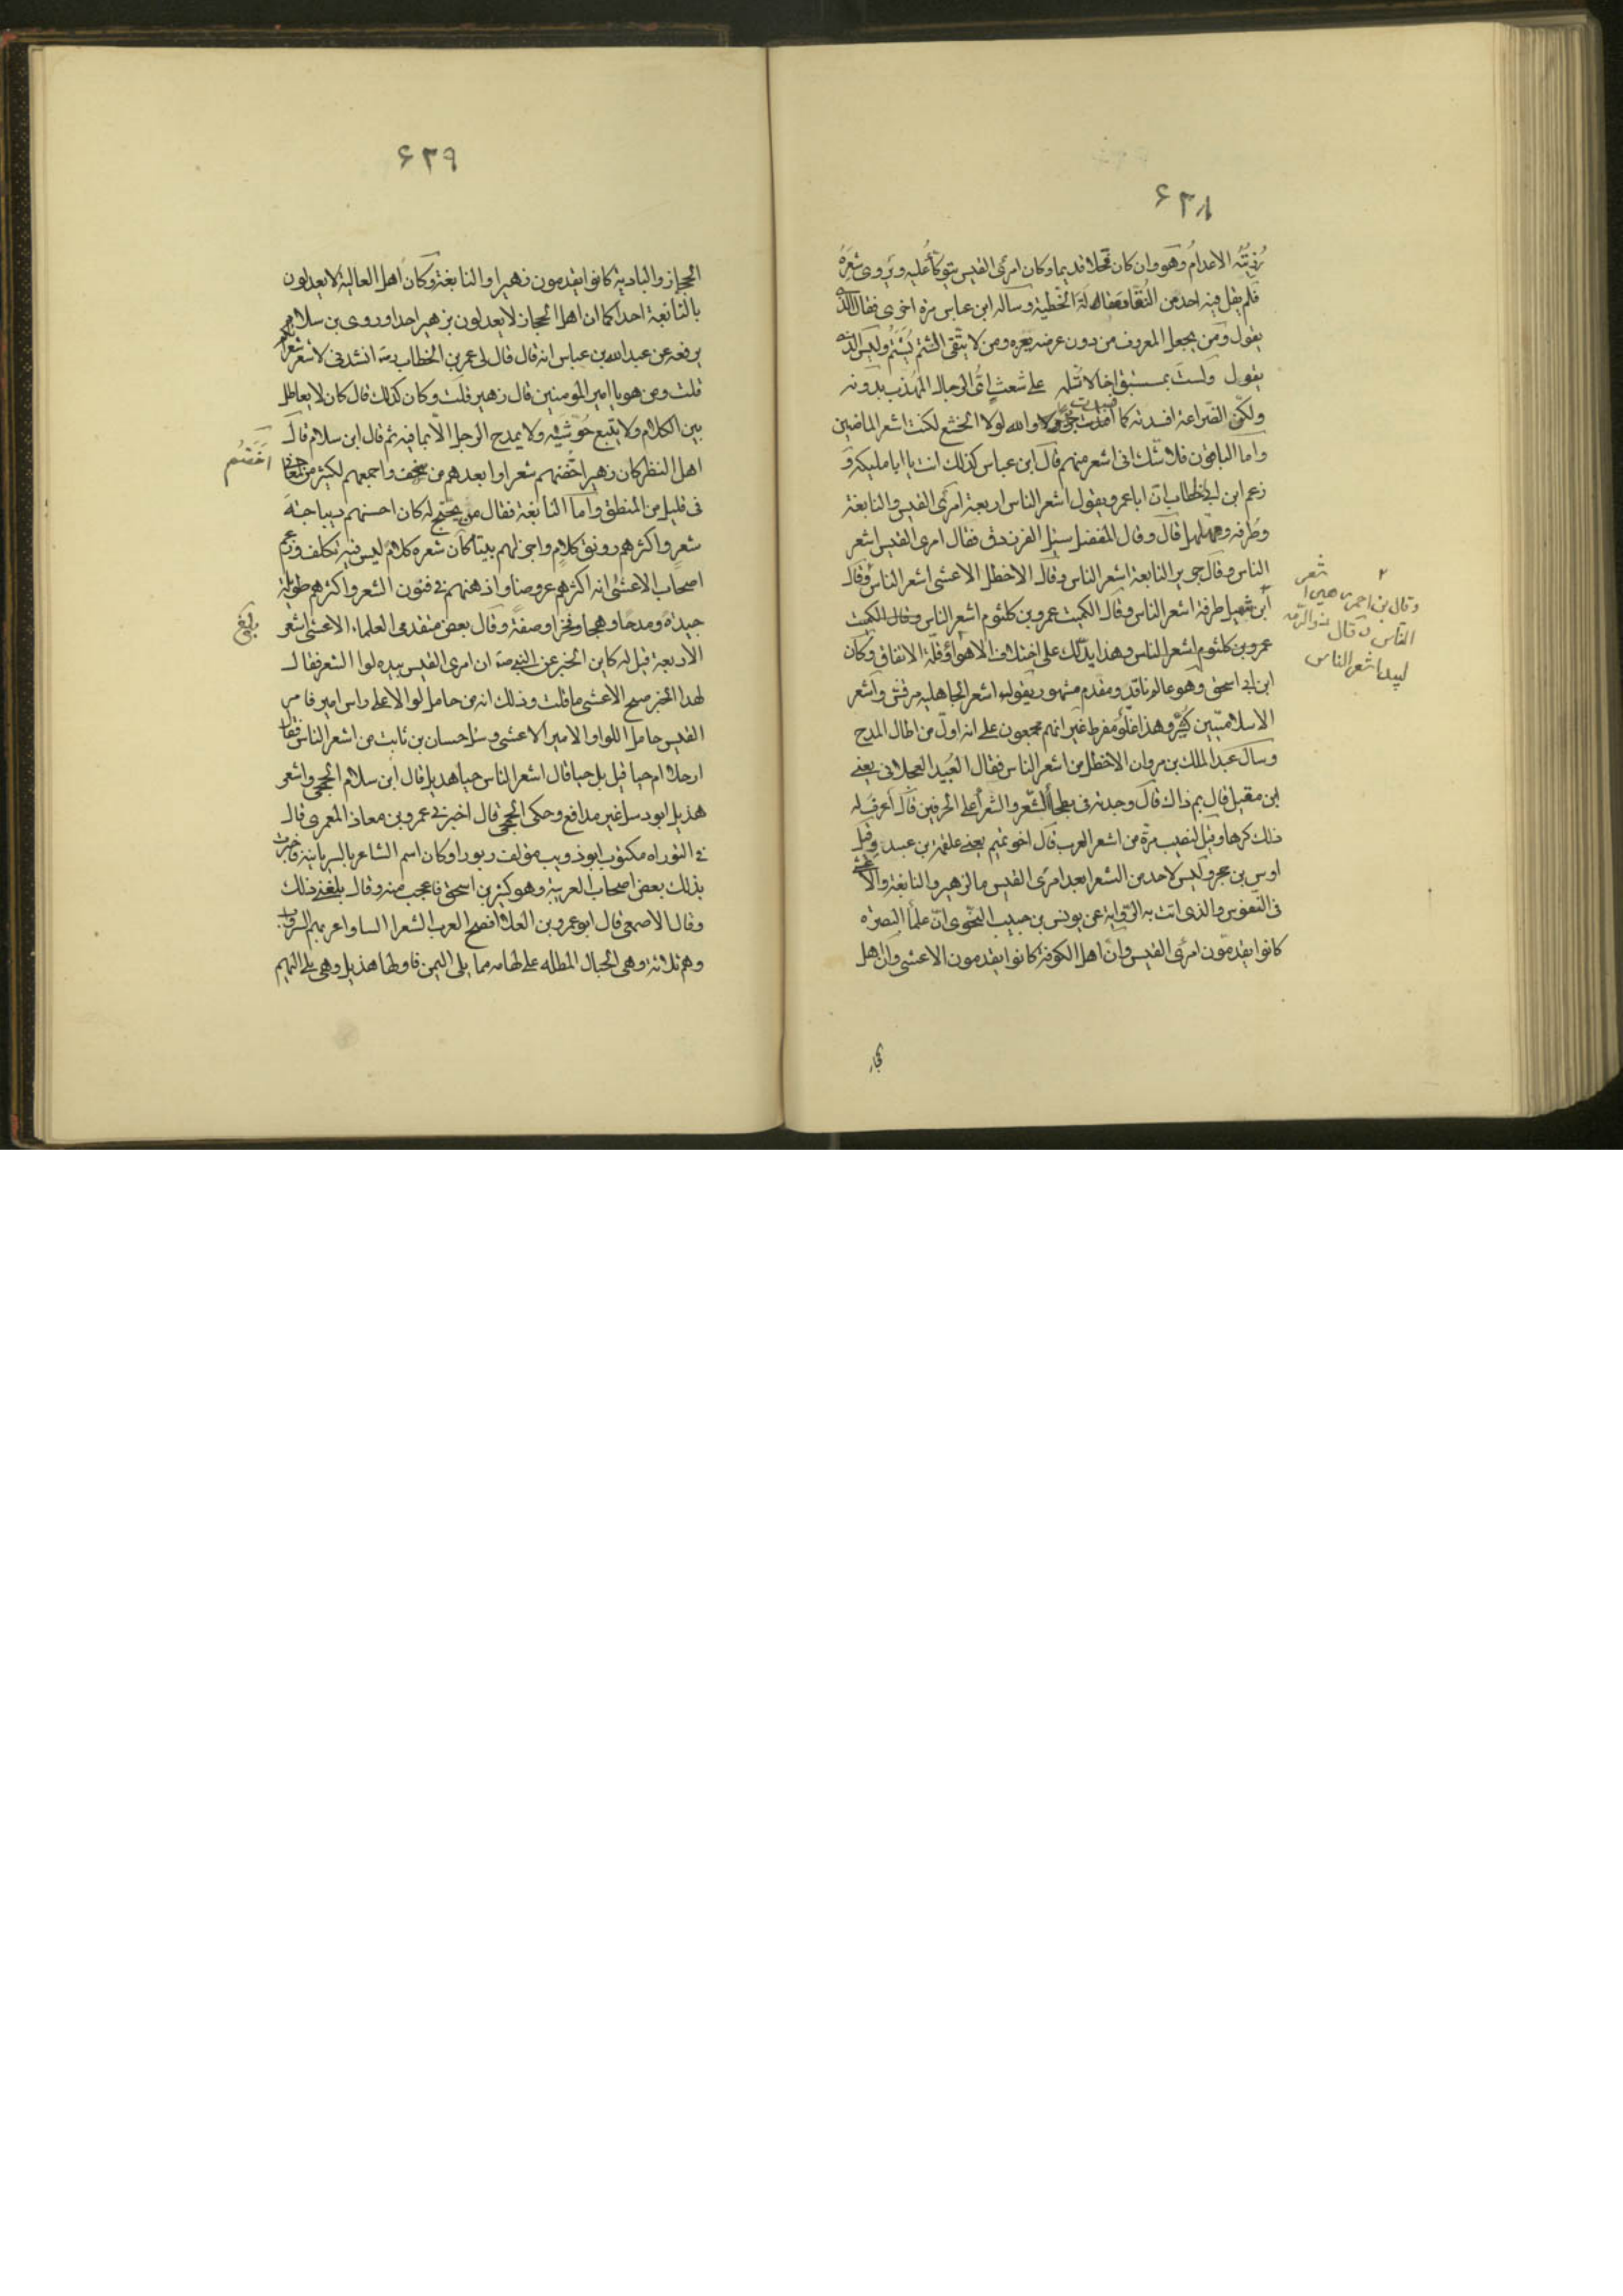 ۶۲۸
رُزِئتُه الاعدامُ وهَو وان كان فحلا قديما وكان امرئ القيس يتوكأ عليه ويروى شعرَهُ
فلم يقل فيه احد من النُقّاد مقاله لَهَ الحُطيئة وساله ابن عباس مرة اخرى فقال الذى
يقول ومَن يجعل المعروف من دون عرضه يفره ومن لا يتّقى الشتم يُشتمُ وليس الذى
يقول ولستَ بمستبق اخا لا تلمه على شعث اىُّ الرجال المهذب بدونه
ولكنّ الضراعة افسدته كما افسدت جرولا والله لولا الجشع لكنت اشعر الماضين
واما الباقون فلا شك انى اشعر منهم قال ابن عباس كذلك انت يا ابا مليكه و
زعم ابن ابى خطاب انّ ابا عمرو يقول اشعر الناس اربعة امرئ القيس والنابغة
وطَرفه ومهلهل قال وقال المفضل سئل الفرزدق فقال امرئ القيس اشعر
الناس وقال جرير النابغة اشعر الناس وقال الاخطل الاعشى اشعر الناس وقال
وقال بن احمر زهير اشعر
الناس وقال ذو الرمّه
لبيد اشعر الناس
ابن شميل طرفة اشعر الناس وقال الكميت عمرو بن كلثوم اشعر الناس وقال الكميت
عمرو بن كلثوم اشعر الناس وهذا يدّلك على اختلاف الاهواء وقلّة الاتفاق وكان
ابن ابى اسحق وهو عالم ناقد ومقدم مشهور يقول اشعر الجاهليه مرقش واشعر
الاسلاميّين كُثيّر وهذا غلّو مُفرط غير انهم مجمعون على انه اوّل من اطال المدح
وسال عبد الملك بن مروان الاخطل من اشعر الناس فقال العُبيد العجلانى يعنى
ابن مقبل قال بم ذاك قال وجدته فى بطحاء الشّعر والشعراء على الحرفين قال اعرف له
ذلك كرها وقيل لنصيب مرّة من اشعر العرب قال اخو تميم يعنى علقمة بن عبده وقيل
اوس بن حجر وليس لاحد من الشعراء بعد امرئ القيس ما لزهير والنابغة والاعشى
فى النّفوس والذى اتت به الرّواية عن يونس بن حبيب النحّوى انّ علماء البصره
كانوا يقدمّون امرئ القيس وانّ اهل الكوفة كانوا يقدمون الاعشى وانّ اهل
الحجاز
۶۲۹
الحجاز والبادية كانوا يقدمون زهيرا والنابغة وكان اهل العالية لا يعدلون
بالنابغة احدا كما ان اهل الحجاز لا يعدلون بزهير احدا وروى بن سلام
يرفعه عن عبد الله بن عباس انه قال قال لى عمر بن الخطاب انشدنى لاشعر شعرائكم
قلت ومن هو يا امير المومنين قال زهير قلت وكان كذلك قال كان لا يعاظل
بين الكلام ولا يتّبع حُوشَيّه ولا يمدح الرجل الّا بما فيه ثم قال ابن سلام قال
اهل النظر كان زهير احصفهم شعرا وابعدهم من سخف واجمعهم لكثير من المعانى
فى قليل من المنطق وامّا النابغة فقال من يحتج له كان احسنهم ديباجة
شعر واكثرهم رونق كلام واجزلهم بيتا كان شعره كلام ليس فيه تكلف وزعم
اصحاب الاعشى انه اكثرهم عروضا واذهبهم فى فنون الشعر واكثرهم طويلة
جيدة ومدحا وهجاء وفخرا وصفة وقال بعض متقدمى العلماء الاعشى اشعر
الاربعة قيل له فاين الخبر عن النبى ان امرئ القيس بيده لوا الشعر فقال
لهذا الخبر صح الاعشى ما قلت وذلك انه من حامل لوا الا على راس امير فامر
القيس حامل اللوا والامير الاعشى وسئل حسان بن ثابت من اشعر الناس فقال
ارجلا ام حيا قيل بل حيا قال اشعر الناس حيا هذيل قال ابن سلام الجمحى واشعر
هذيل ابو ذويب غير مدافع وحكى الجمحى قال اخبرنى عمرو بن معاذ المعمرى قال
فى التوراه مكتوب ابو ذويب مؤلف زبورا وكان اسم الشاعر بالسريانية فاخبرت
بذلك بعض اصحاب العربية وهو كثير بن اسحق فاعجب منه وقال بلغنى ذلك
وقال الاصمعى قال ابو عمرو بن العلا افصح العرب الشعرا السنا واعربهم السروات
وهم ثلاثة وهى الجبال المطله على تهامه مما يلى اليمن فاولها هذيل وهى يلى التهم